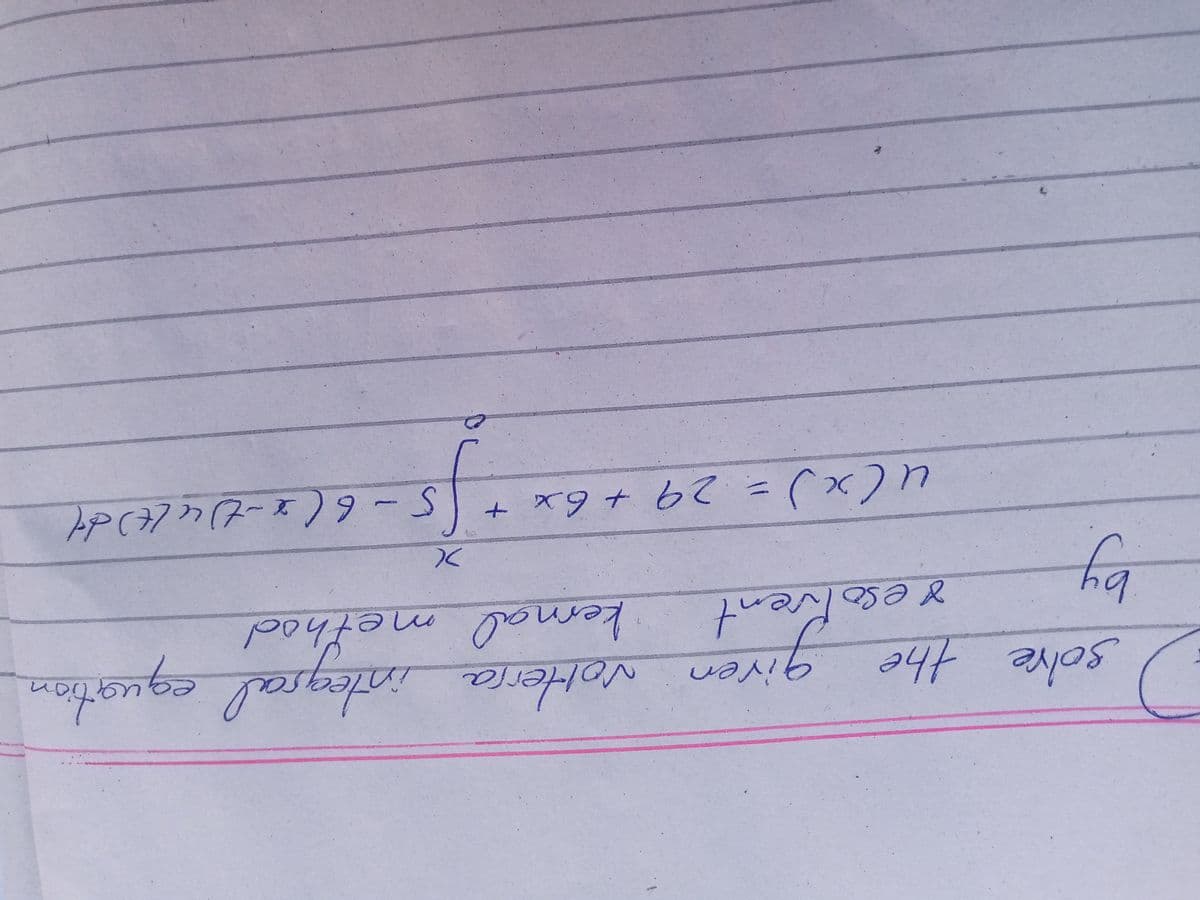 solve the given volterra integral equation
by resolvent kernal method
u(x) = 29 + 6x + ∫₀ˣ 5 - 6(x-t)u(t)dt